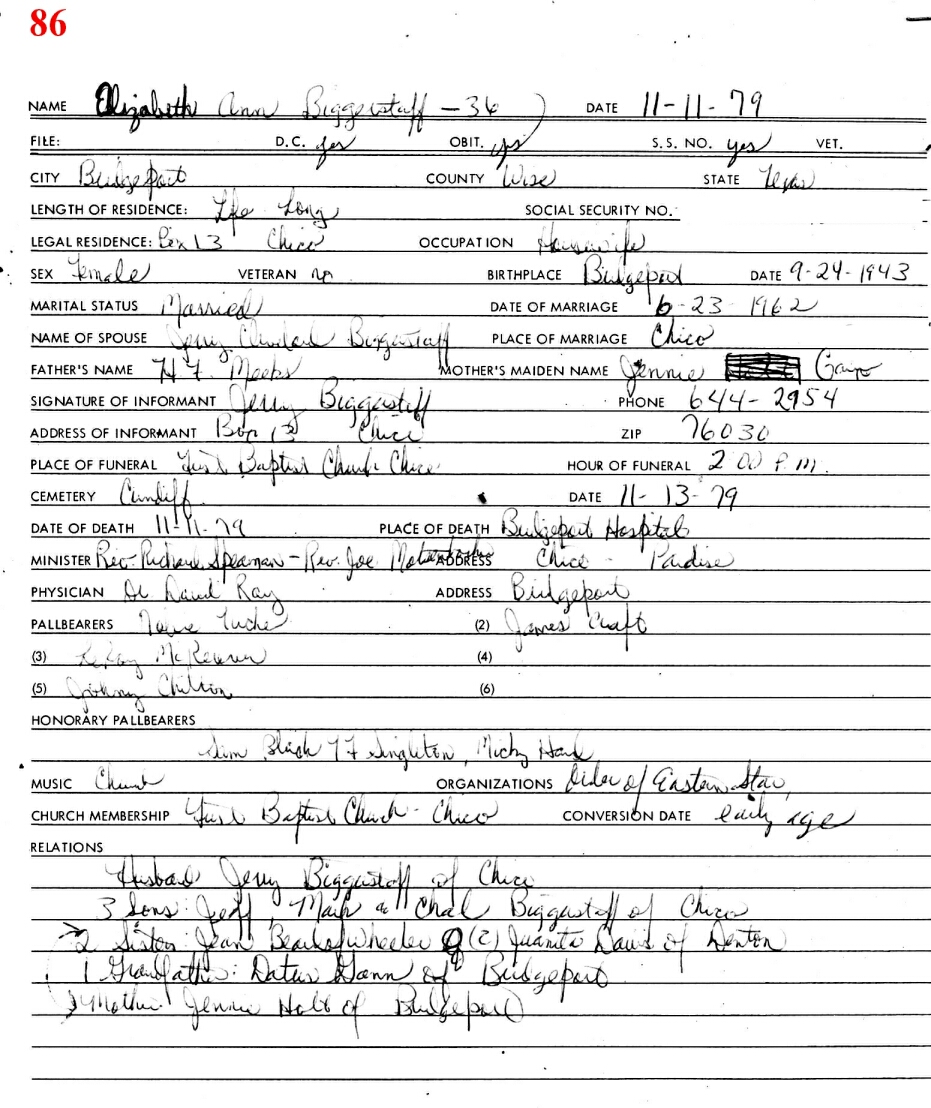 86
NAME Elizabeth Ann Biggerstaff - 36 DATE 11-11-79
FILE: D.C. yes OBIT. yes S.S. NO. yes VET.
CITY Bridgeport COUNTY Wise STATE Texas
LENGTH OF RESIDENCE: Life Long SOCIAL SECURITY NO.
LEGAL RESIDENCE: Box 13 Chico OCCUPATION Housewife
SEX Female VETERAN no BIRTHPLACE Bridgeport DATE 9-24-1943
MARITAL STATUS Married DATE OF MARRIAGE 6-23-1962
NAME OF SPOUSE Jerry Biggerstaff PLACE OF MARRIAGE Chico
FATHER'S NAME H.F. Meeks MOTHER'S MAIDEN NAME Jennie
SIGNATURE OF INFORMANT Jerry Biggerstaff PHONE 644-2954
ADDRESS OF INFORMANT Box 13 Chico ZIP 76030
PLACE OF FUNERAL First Baptist Church Chico HOUR OF FUNERAL 2:00 P.M.
CEMETERY Cundiff DATE 11-13-79
DATE OF DEATH 11-11-79 PLACE OF DEATH Bridgeport Hospital
MINISTER Rev. Richard Spearman - Rev. Joe ADDRESS Chico - Paradise
PHYSICIAN Dr David Ray ADDRESS Bridgeport
PALLBEARERS (2) James Craft
(3) LeRoy (4)
(5) Johnny Chilton (6)
HONORARY PALLBEARERS
Singleton, Micky
MUSIC Church ORGANIZATIONS Order of Eastern Star,
CHURCH MEMBERSHIP First Baptist Church - Chico CONVERSION DATE early age
RELATIONS
Husband Jerry Biggerstaff of Chico
3 Sons: Jeff, Mark & Chad Biggerstaff of Chico
2 Sisters: Jean of Wheeler (2) Juanita Davis of Denton
1 Grandfather: Datus Gann of Bridgeport
Mother Jennie Holt of Bridgeport